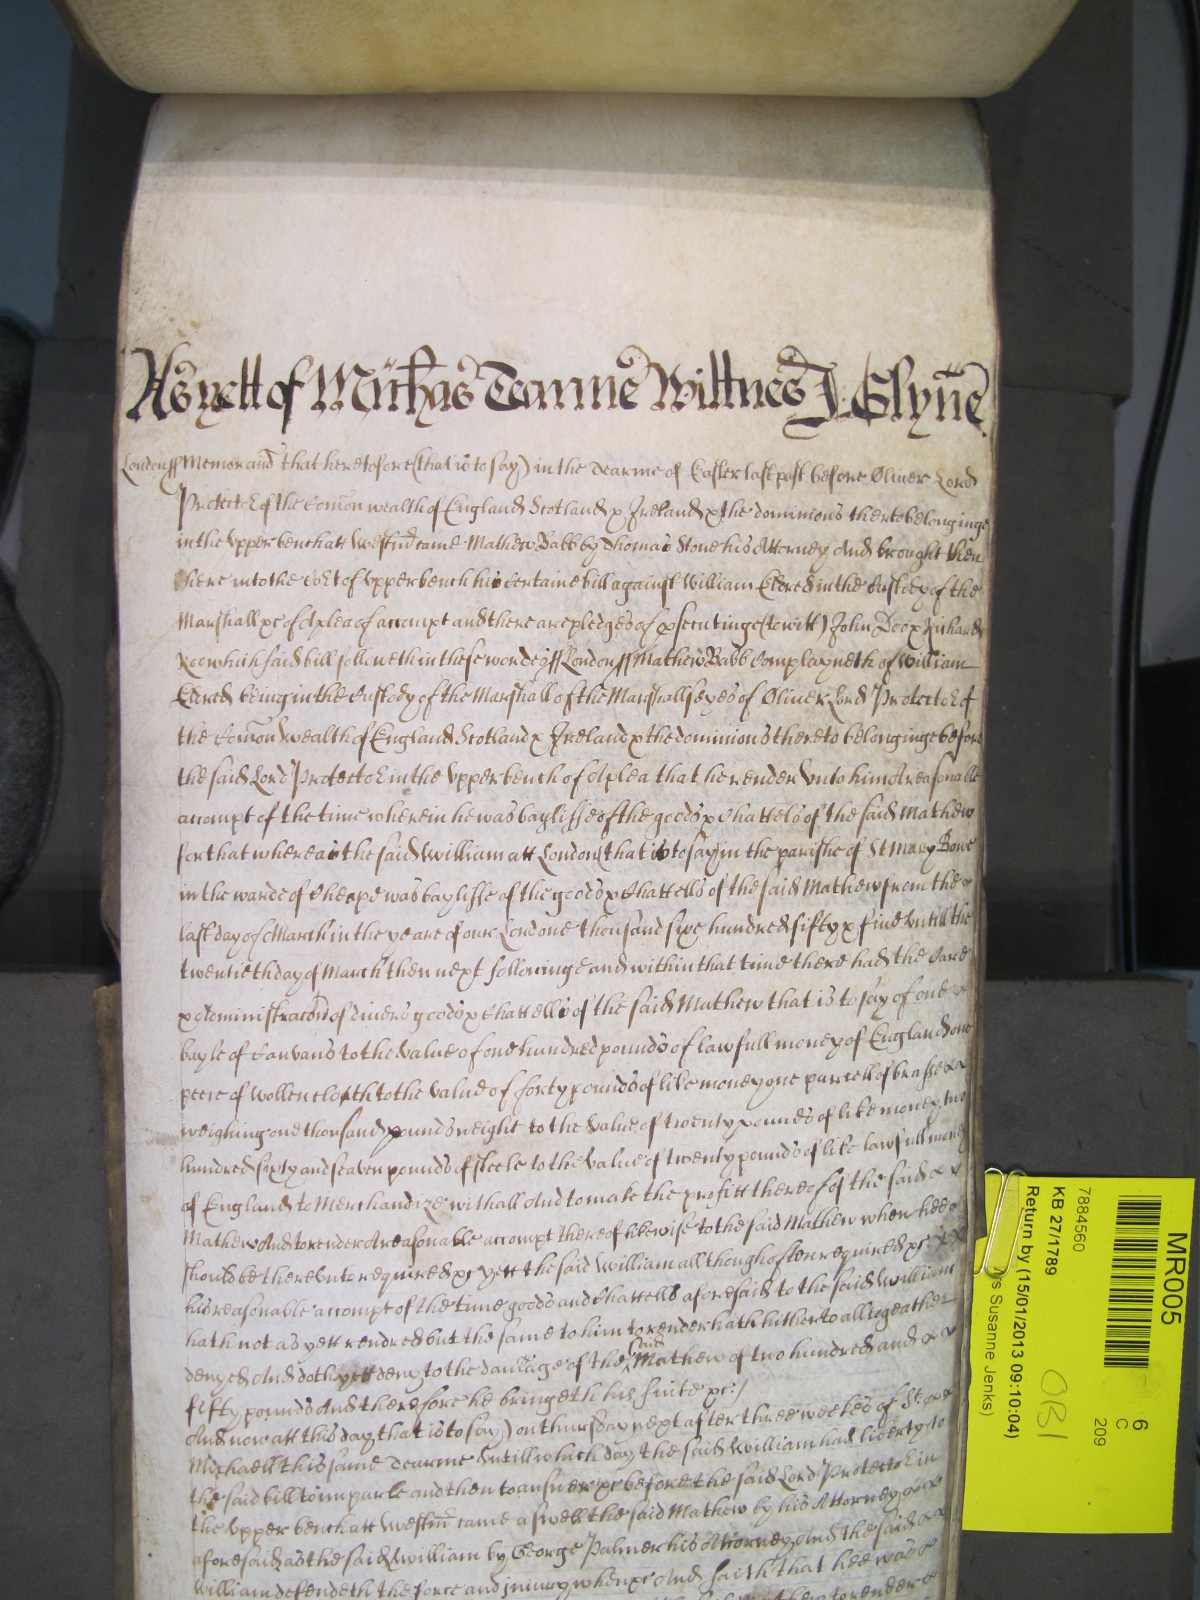 As yett of Mich'as Tearme Wittnes J: Glynne
London ss Memorand' that heretofore (that is to say) in the Tearme of Easter last past before Oliver Lord
Protector of the Com'on wealth of England Scotland & Ireland & the dominions thereto belonginge
in the upper bench att Westm' came Mathew Babb by Thomas Stone his Attorney And brought then
here into the Co't of upper bench his Certaine bill against William Elered in the Custody of the
Marshall &c of A plea of accompt and there are pledges of p'secutinge (to witt) John Doe & Richard
Roe which said bill followeth in these wordes ss London ss Mathew Babb Complayneth of William
Elered being in the Custody of the Marshall of the Marshallseyes of Oliver Lord Protector of
the Com'on wealth of England Scotland & Ireland & the dominions thereto belonginge before
the said Lord Protector in the Upper bench of A plea that he render Unto him A reasonable
accompt of the time wherein he was bayliffe of the goods & Chattels of the said Mathew
for that whereas the said William att London (that is to say) in the parishe of St Mary Bowe
in the warde of Cheape was bayliffe of the goods & Chattells of the said Mathew from the
last day of March in the yeare of our Lord one thousand six hundred fifty & five Untill the
twentieth day of March then next followinge and within that time there had the Care
& Administrac'on of divers goods & Chattells of the said Mathew that is to say of one
bayle of Canvans to the Value of one hundred pounds of lawfull money of England one
peece of wollen cloath to the value of forty pounds of like money one parcell of brasse
weighing one thousand pounds weight to the Value of twenty pounds of like money two
hundred sixty and seaven pounds of steele to the Value of twenty pounds of like lawfull money
of England to Merchandize withall And to make the profitt thereof of the said
Mathew And to render A reasonable accompt thereof likewise to the said Mathew when hee
should be thereunto required &c yett the said William allthough often required &c
his reasonable accompt of the time goods and Chattells aforesaid to the said William
hath not as yett rendred but the same to him to render hath hitherto alltogeather
denyed And doth yett deny to the dammage of the said Mathew of two hundred and
fifty pounds And therefore he bringeth his suite &c:/
And now att this day (that is to say) on thursday next after three weekes of St
Michaell this same Tearme Untill which day the said William had liberty to
the said bill to imparle and then to answer &c before the said Lord Protector in
the Upper bench att Westm' came aswell the said Mathew by his Attorney
aforesaid as the said William by George Palmer his Attorney And the said
William defendeth the force and iniury when &c And saith that hee was
MR005
6
C
209
7884560
KB 27/1789
Return by (15/01/2013 09:10:04)
Susanne Jenks)